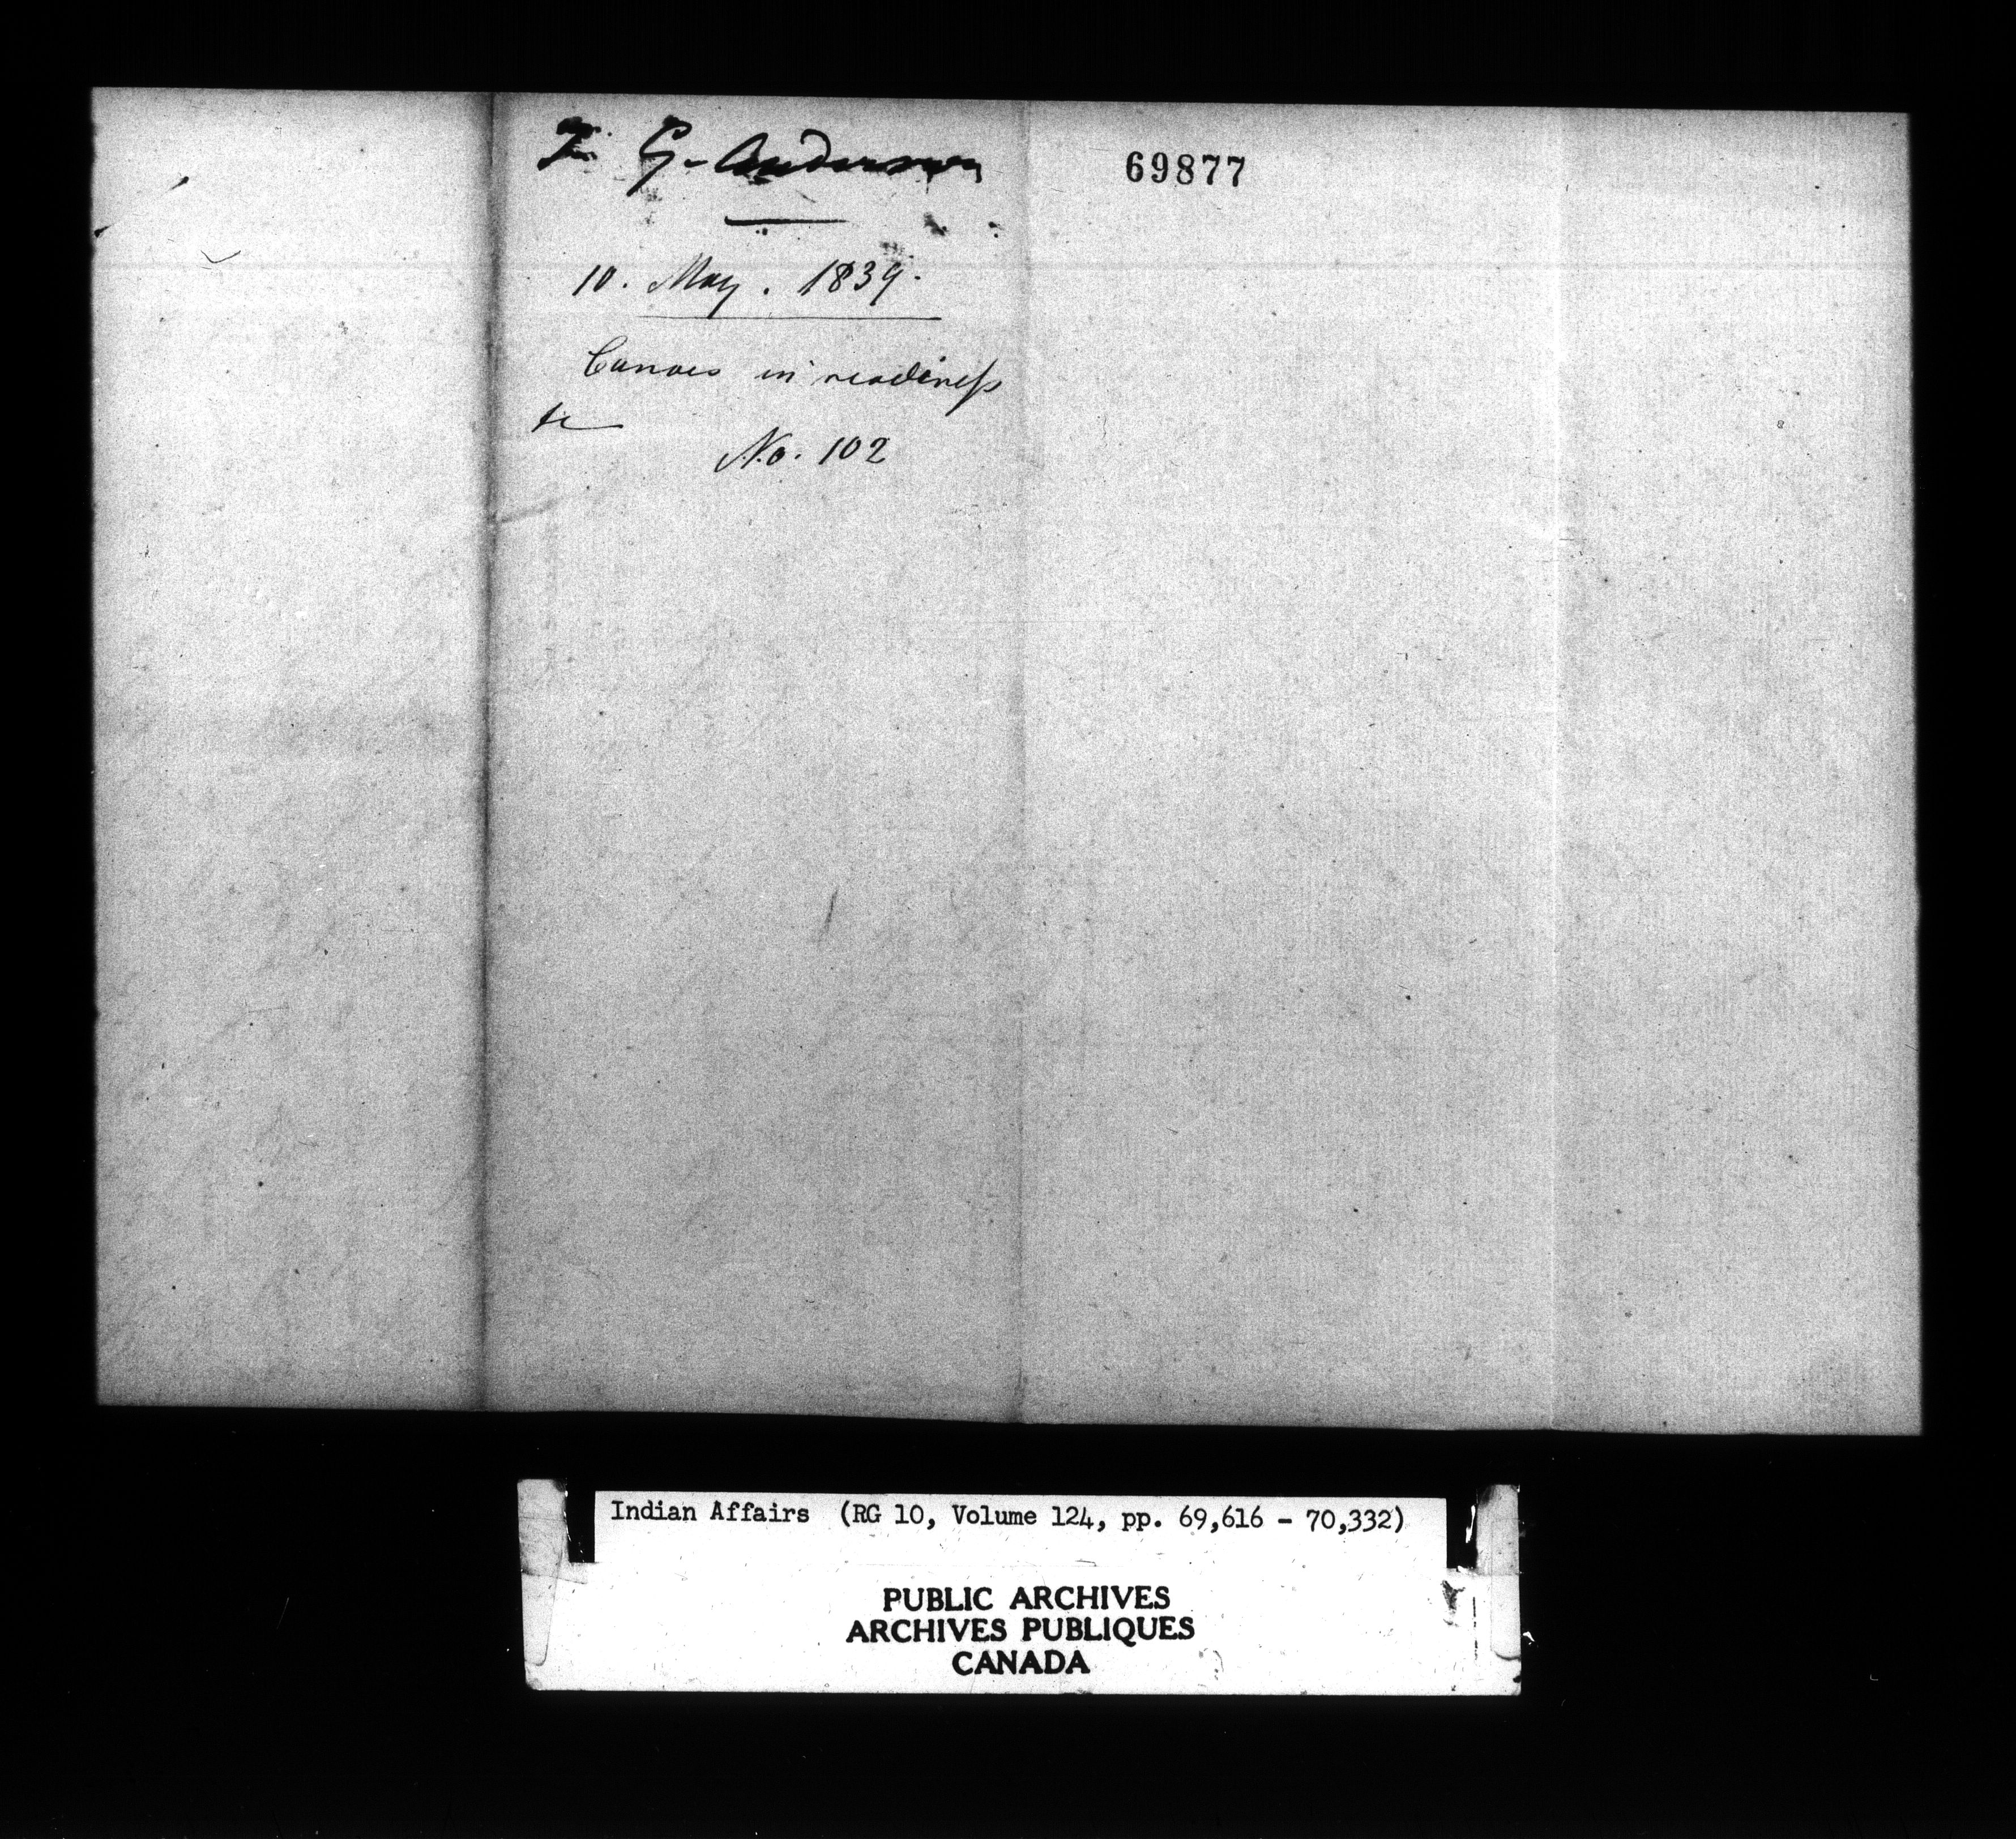 T. G. Anderson
69877
10. May. 1839.
Canoes in readiness
&c
No. 102
Indian Affairs (RG 10, Volume 124, pp. 69,616 - 70,332)
PUBLIC ARCHIVES
ARCHIVES PUBLIQUES
CANADA